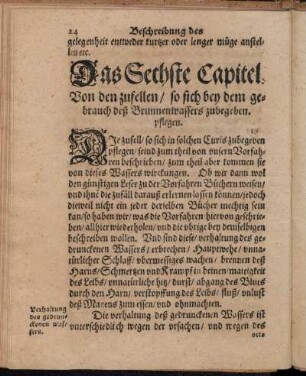 24 Beschreibung des
gelegenheit entweder kurtzer oder lenger müge anstel-
len etc.
Das Sechste Capitel.
Von den zufellen / so sich bey dem ge-
brauch deß Brunnenwassers zubegeben
pflegen.
DIe zufell / so sich in solchen Curis zubegeben
pflegen / seind zum theil von unsern Vorfah-
ren beschrieben / zum theil aber kommen sie
von dieses Wassers wirckungen. Ob wir dann wol
den günstigen Leser zu der Vorfahren Büchern weisen /
und ihn die zufäll darauß erlernen lassen könten / jedoch
dieweil nicht ein jeder derselben Bücher mechtig sein
kan / so haben wir / was die Vorfahren hiervon geschrie-
ben / allhier wiederholen / und die ubrige bey demselbigen
beschreiben wollen. Und sind diese / verhaltung des ge-
drunckenen Wassers / erbrechen / Hauptwehe / unna-
türlicher Schlaff / ubermessiges wachen / brennen deß
Harns / Schmertzen und Krampf in beinen / mattigkeit
des Leibs / unnatürliche hitz / durst / abgang des Bluts
durch den Harn / verstopffung des Leibs / fluß / unlust
deß Magens zum essen / und ohnmachten.
Verhaltung
des gedrun-
ckenen was-
sers.
Die verhaltung deß gedrunckenen Wassers ist
unterschiedlich wegen der ursachen / und wegen des
orts